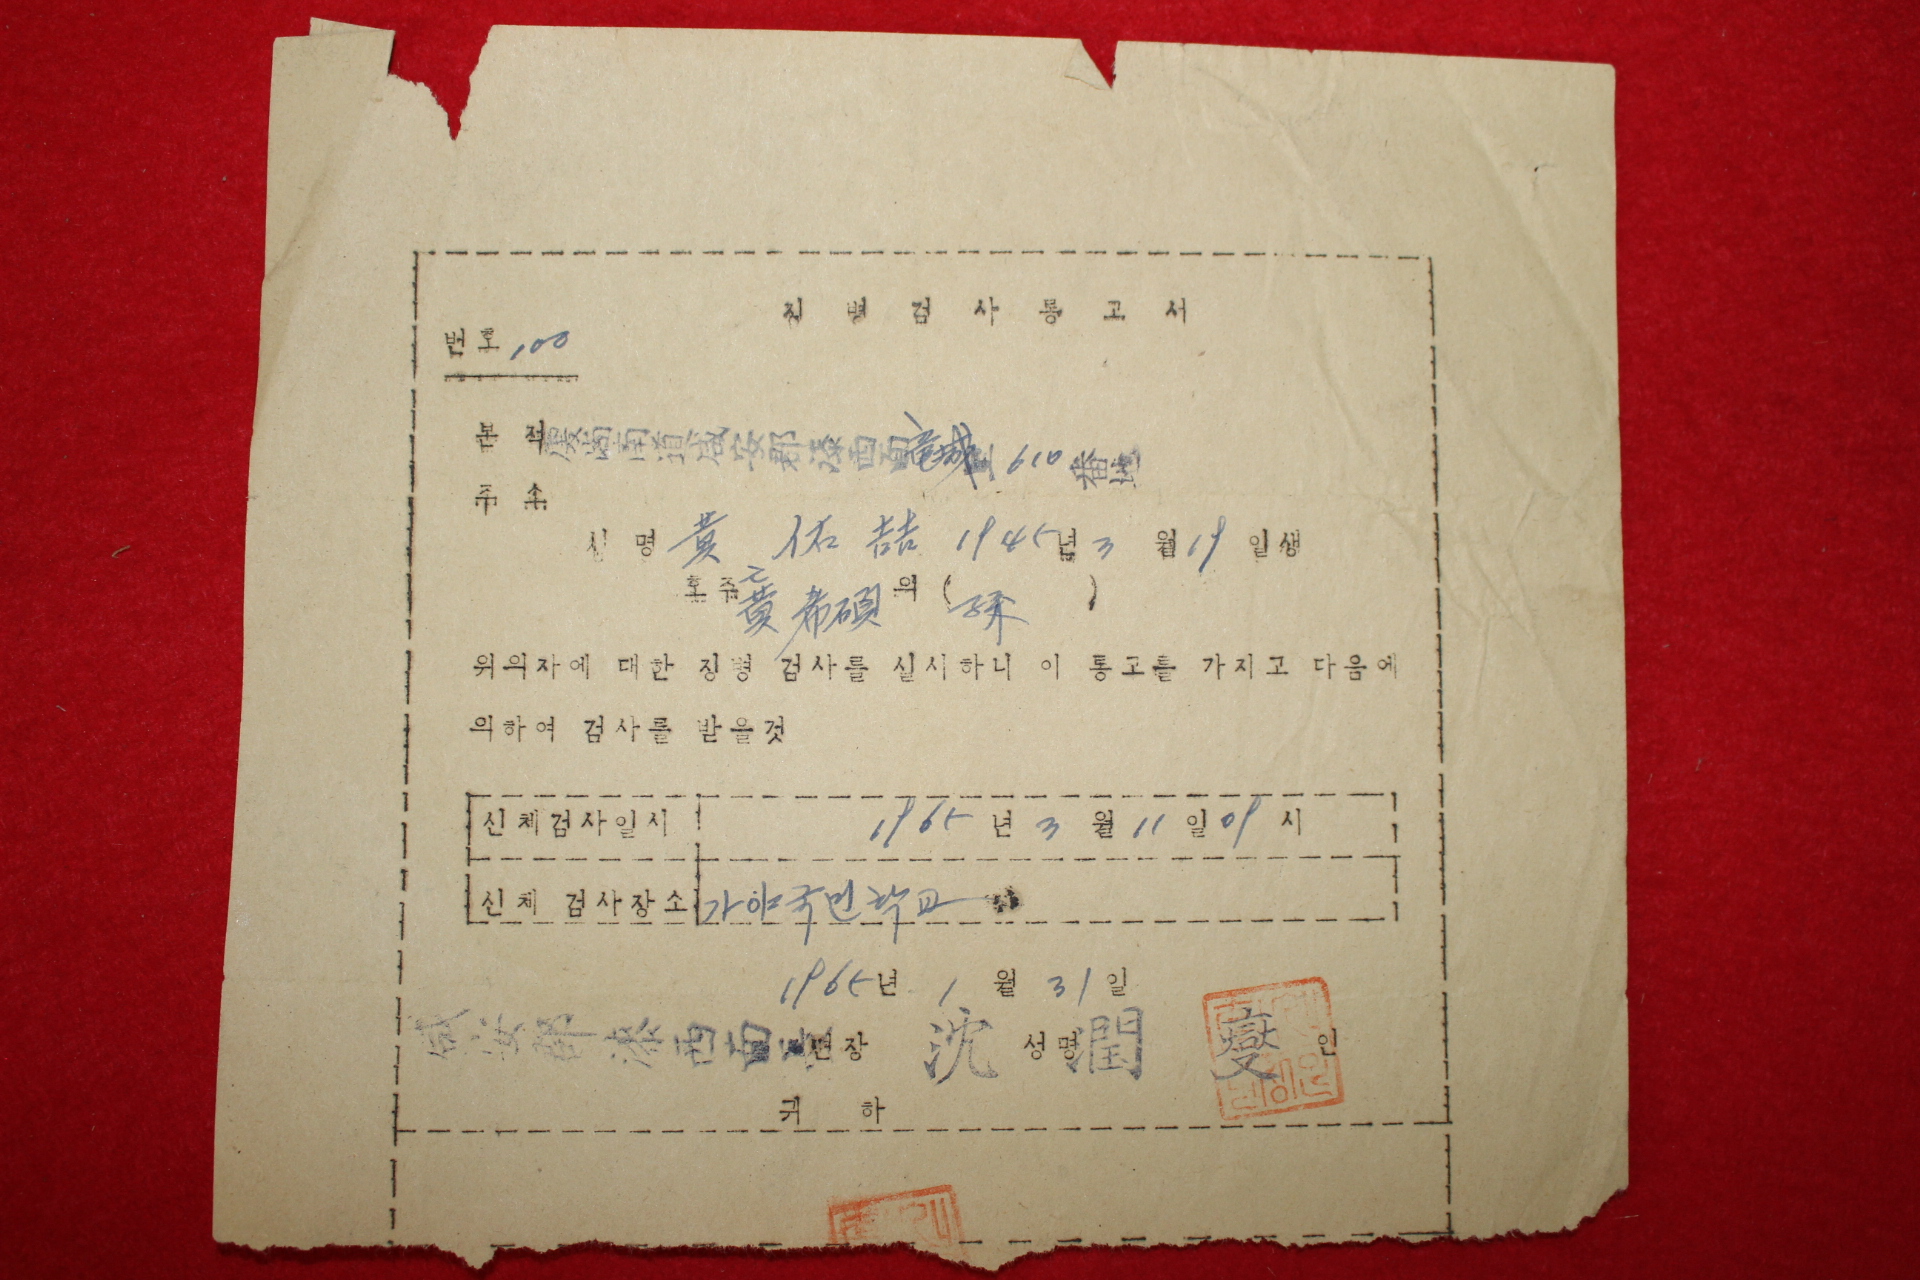 징병검사통고서
번호 100
본적 慶尚南道咸安郡漆西面 龍城里 610 番地
주소
신명 黃 佑喆 1945년 3 월 19 일생
호주 黃希碩 의 ( )
위의자에 대한 징병 검사를 실시하니 이 통고를 가지고 다음에
의하여 검사를 받을것
신체검사일시 1965 년 3 월 11 일 09 시
신체 검사장소 가야국민학교
1965년 1 월 31 일
咸安郡漆西面 면장 沈 성명 潤 燮 인
귀 하